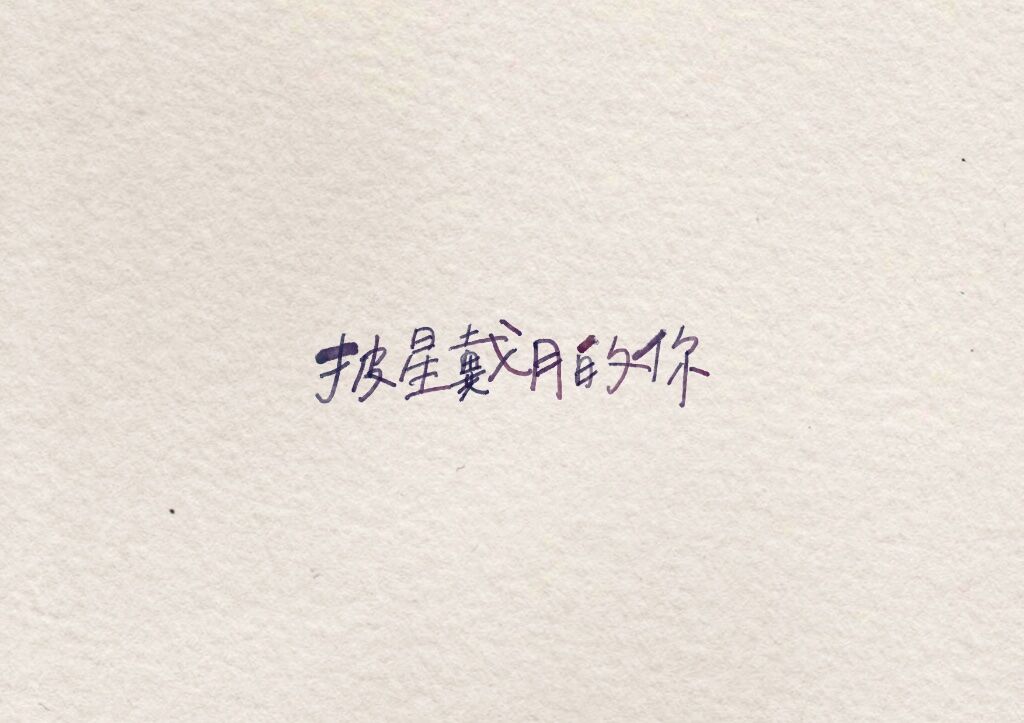 披星戴月的你